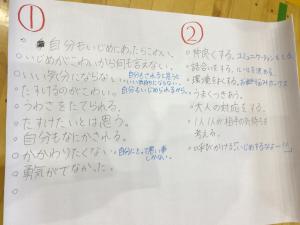 ①
自分もいじめにあったらこわい。
いじめがこわいから何も言えない。
いい気分にならない。
自分もされると思うと
いい気持ちにならない。
たすけるのがこわい。
自分もいじめられるから。
うわさをたてられる。
たすけたいとは思う。
自分もなにかされる。
かかわりたくない。
自分にとって悪い事
しかない。
勇気がでなかった。
②
仲良くする。コミュニケーションをとる。
話合いをする。ルールを決める。
環境をよくする。
うまくつきあう。
大人の対応をする。
1人1人が相手の気持ちを
考える。
呼びかける(いじめするなよー!!)